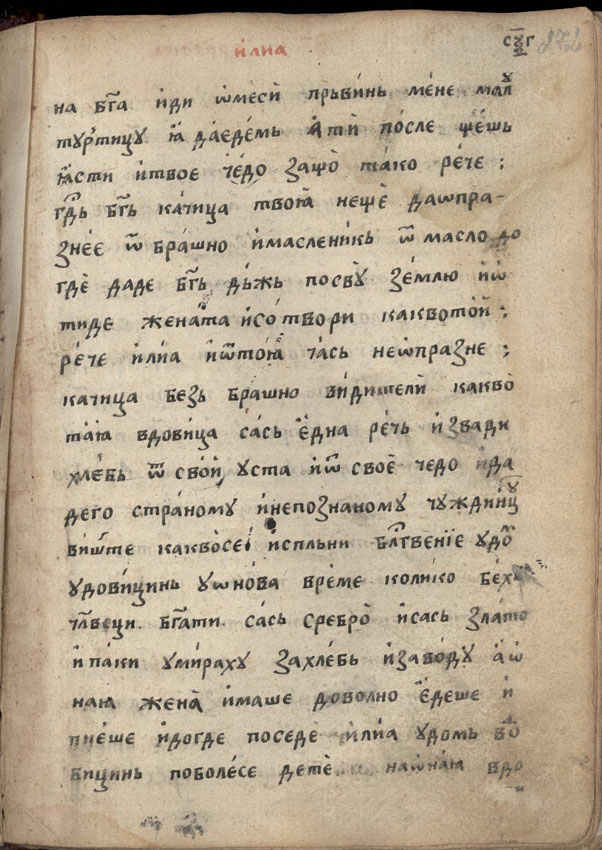 и҆лиа
сѯ҃г 272
на бг҃а и҆ди ѡ҆меси прьви́нь ме́не малꙋ
тур̾тицу ꙗ҆ да́едемь ꙗ҆ти по́сле ще́шь
ꙗ҆́сти и҆твое че́до защо̀ та́ко ре́че :
гдⷭ҇ь бг҃ь ка́чица твоꙗ̀ нещѐ даѡпра-
зне́е ѿ бра́шно и҆ма́сленикь ѿ ма́сло до
гдѐ даде бг҃ь дь́жь посвꙋ̀ зе́млю и҆ѡ
ти́де жена̀та и҆со́твори какво̀то́й :
ре́че и҆лиа и҆ѿтоꙗ̀ ча́сь неѡ҆празне :
качица безь брашно ви́дители̇̀ какво̀
таꙗ̀ вдови́ца са́сь е҆́дна ре́чь и҆звади
хле́бь ѿ сво́й уста и҆ѿ своѐ чедо и҆да
де́го стра́ному и҆непозна́ному чужди́нцꙋ
ви́щте каквосѐ и҆спльни блⷭ҇гтве́нїе удо́
удови́цинь уѡно́ва вре́ме коли́ко бе́хꙋ
чл҃веци. бг҃ати. са́сь сребро̀ и҆сась зла́то
и҆па́ки умираху захлебь и҆заво́ду а҆ѡ
наꙗ жена̀ и҆маше доволно е҆деше и҆
пие́ше и҆догде поседѐ и҆лиа удомь вдо
вицинь поболе́се детѐ и҆ наѡна́ꙗ вдо